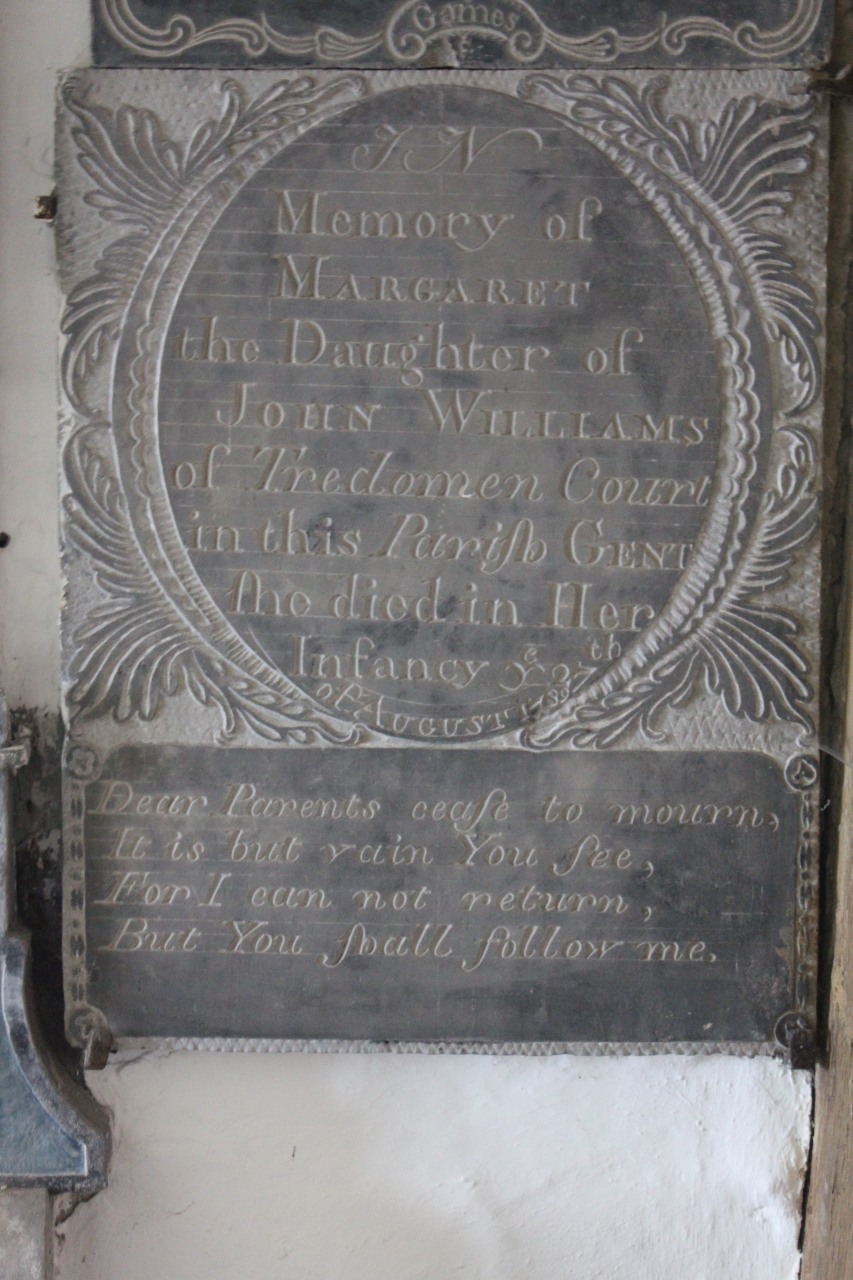 Games
IN
Memory of
MARGARET
the Daughter of
JOHN WILLIAMS
of Tredomen Court
in this Pariſh GENT
ſhe died in Her
Infancy yͤ 27th
of AUGUST
Dear Parents ceaſe to mourn,
It is but vain You ſee,
For I can not return,
But You ſhall follow me.